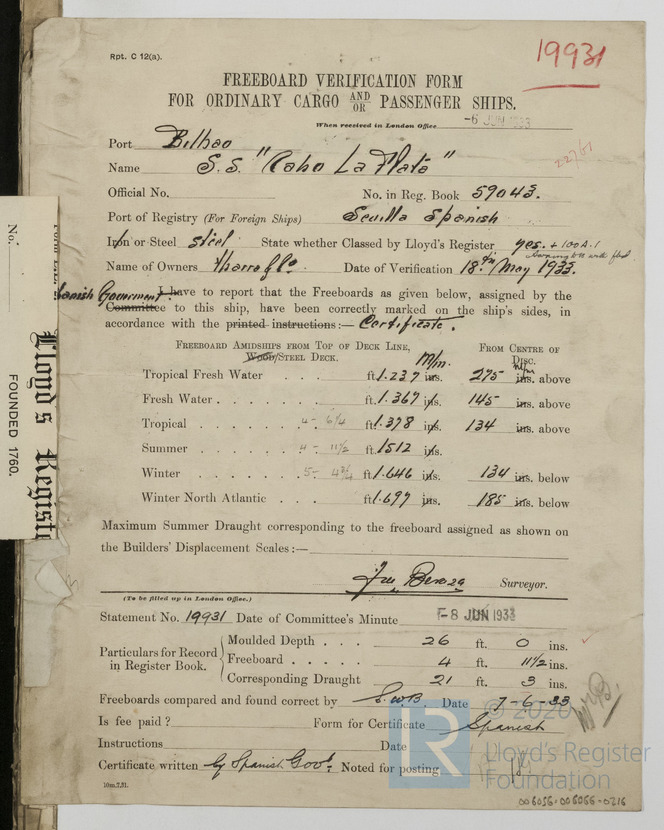 Rpt. C 12(a).
19931
FREEBOARD VERIFICATION FORM
FOR ORDINARY CARGO AND OR PASSENGER SHIPS.
When received in London Office -6 JUN 1933
Port Bilbao
Name S.S. "Cabo La Plata"
Official No. No. in Reg. Book 59043.
Port of Registry (For Foreign Ships) Sevilla Spanish
Iron or Steel steel State whether Classed by Lloyd's Register yes. + 100 A.1
with fbd
Name of Owners Ybarra & Co. Date of Verification 18th May 1933.
Spanish Government. I have to report that the Freeboards as given below, assigned by the
Committee to this ship, have been correctly marked on the ship's sides, in
accordance with the printed instructions:— Certificate.
FREEBOARD AMIDSHIPS FROM TOP OF DECK LINE, FROM CENTRE OF
WOOD/STEEL DECK. M/m. DISC. M/m
Tropical Fresh Water . . . ft. 1.237 ins. 275 ins. above
Fresh Water . . . . . . . ft. 1.367 ins. 145 ins. above
Tropical . . . . . 4 - 6 1/4 ft. 1.378 ins. 134 ins. above
Summer . . . . . . 4 - 11 1/2 ft. 1512 ins.
Winter . . . . . . 5 - 4 3/4 ft. 1.646 ins. 134 ins. below
Winter North Atlantic . . . ft. 1.697 ins. 185 ins. below
Maximum Summer Draught corresponding to the freeboard assigned as shown on
the Builders' Displacement Scales:—
Surveyor.
(To be filled up in London Office.)
Statement No. 19931 Date of Committee's Minute F-8 JUN 1933
Particulars for Record in Register Book.
Moulded Depth . . . 26 ft. 0 ins.
Freeboard . . . . . 4 ft. 11 1/2 ins.
Corresponding Draught 21 ft. 3 ins.
Freeboards compared and found correct by S.W.B Date 7-6-33
Is fee paid? Form for Certificate Spanish
Instructions Date
Certificate written by Spanish Govt. Noted for posting
10m.7,31.
No.
Lloyd's Registe
FOUNDED 1760.
© 2020
Lloyd's Register
Foundation
006056-006066-0216